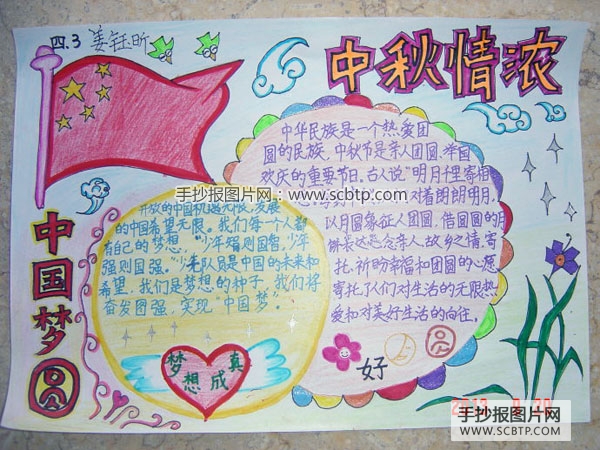 四.3 姜钰昕
中秋情浓
中华民族是一个热爱团
圆的民族，中秋节是亲人团圆、举国
欢庆的重要节日。古人说“明月千里寄相
对着朗朗明月，
以月圆象征人团圆，借圆圆的月
饼表达思念亲人、故乡之情，寄
托、祈盼幸福和团圆的心愿，
寄托了人们对生活的无限热
爱和对美好生活的向往。
手抄报图片网：www.scbtp.com
中国梦圆
开放的中国机遇无限，发展
的中国希望无限。我们每个人都
有自己的梦想，“少年强则国智，少年
强则国强。”少先队员是中国的未来和
希望，我们是梦想的种子，我们将
奋发图强，实现“中国梦”。
梦想成真
好
手抄报图片网
WWW.SCBTP.COM